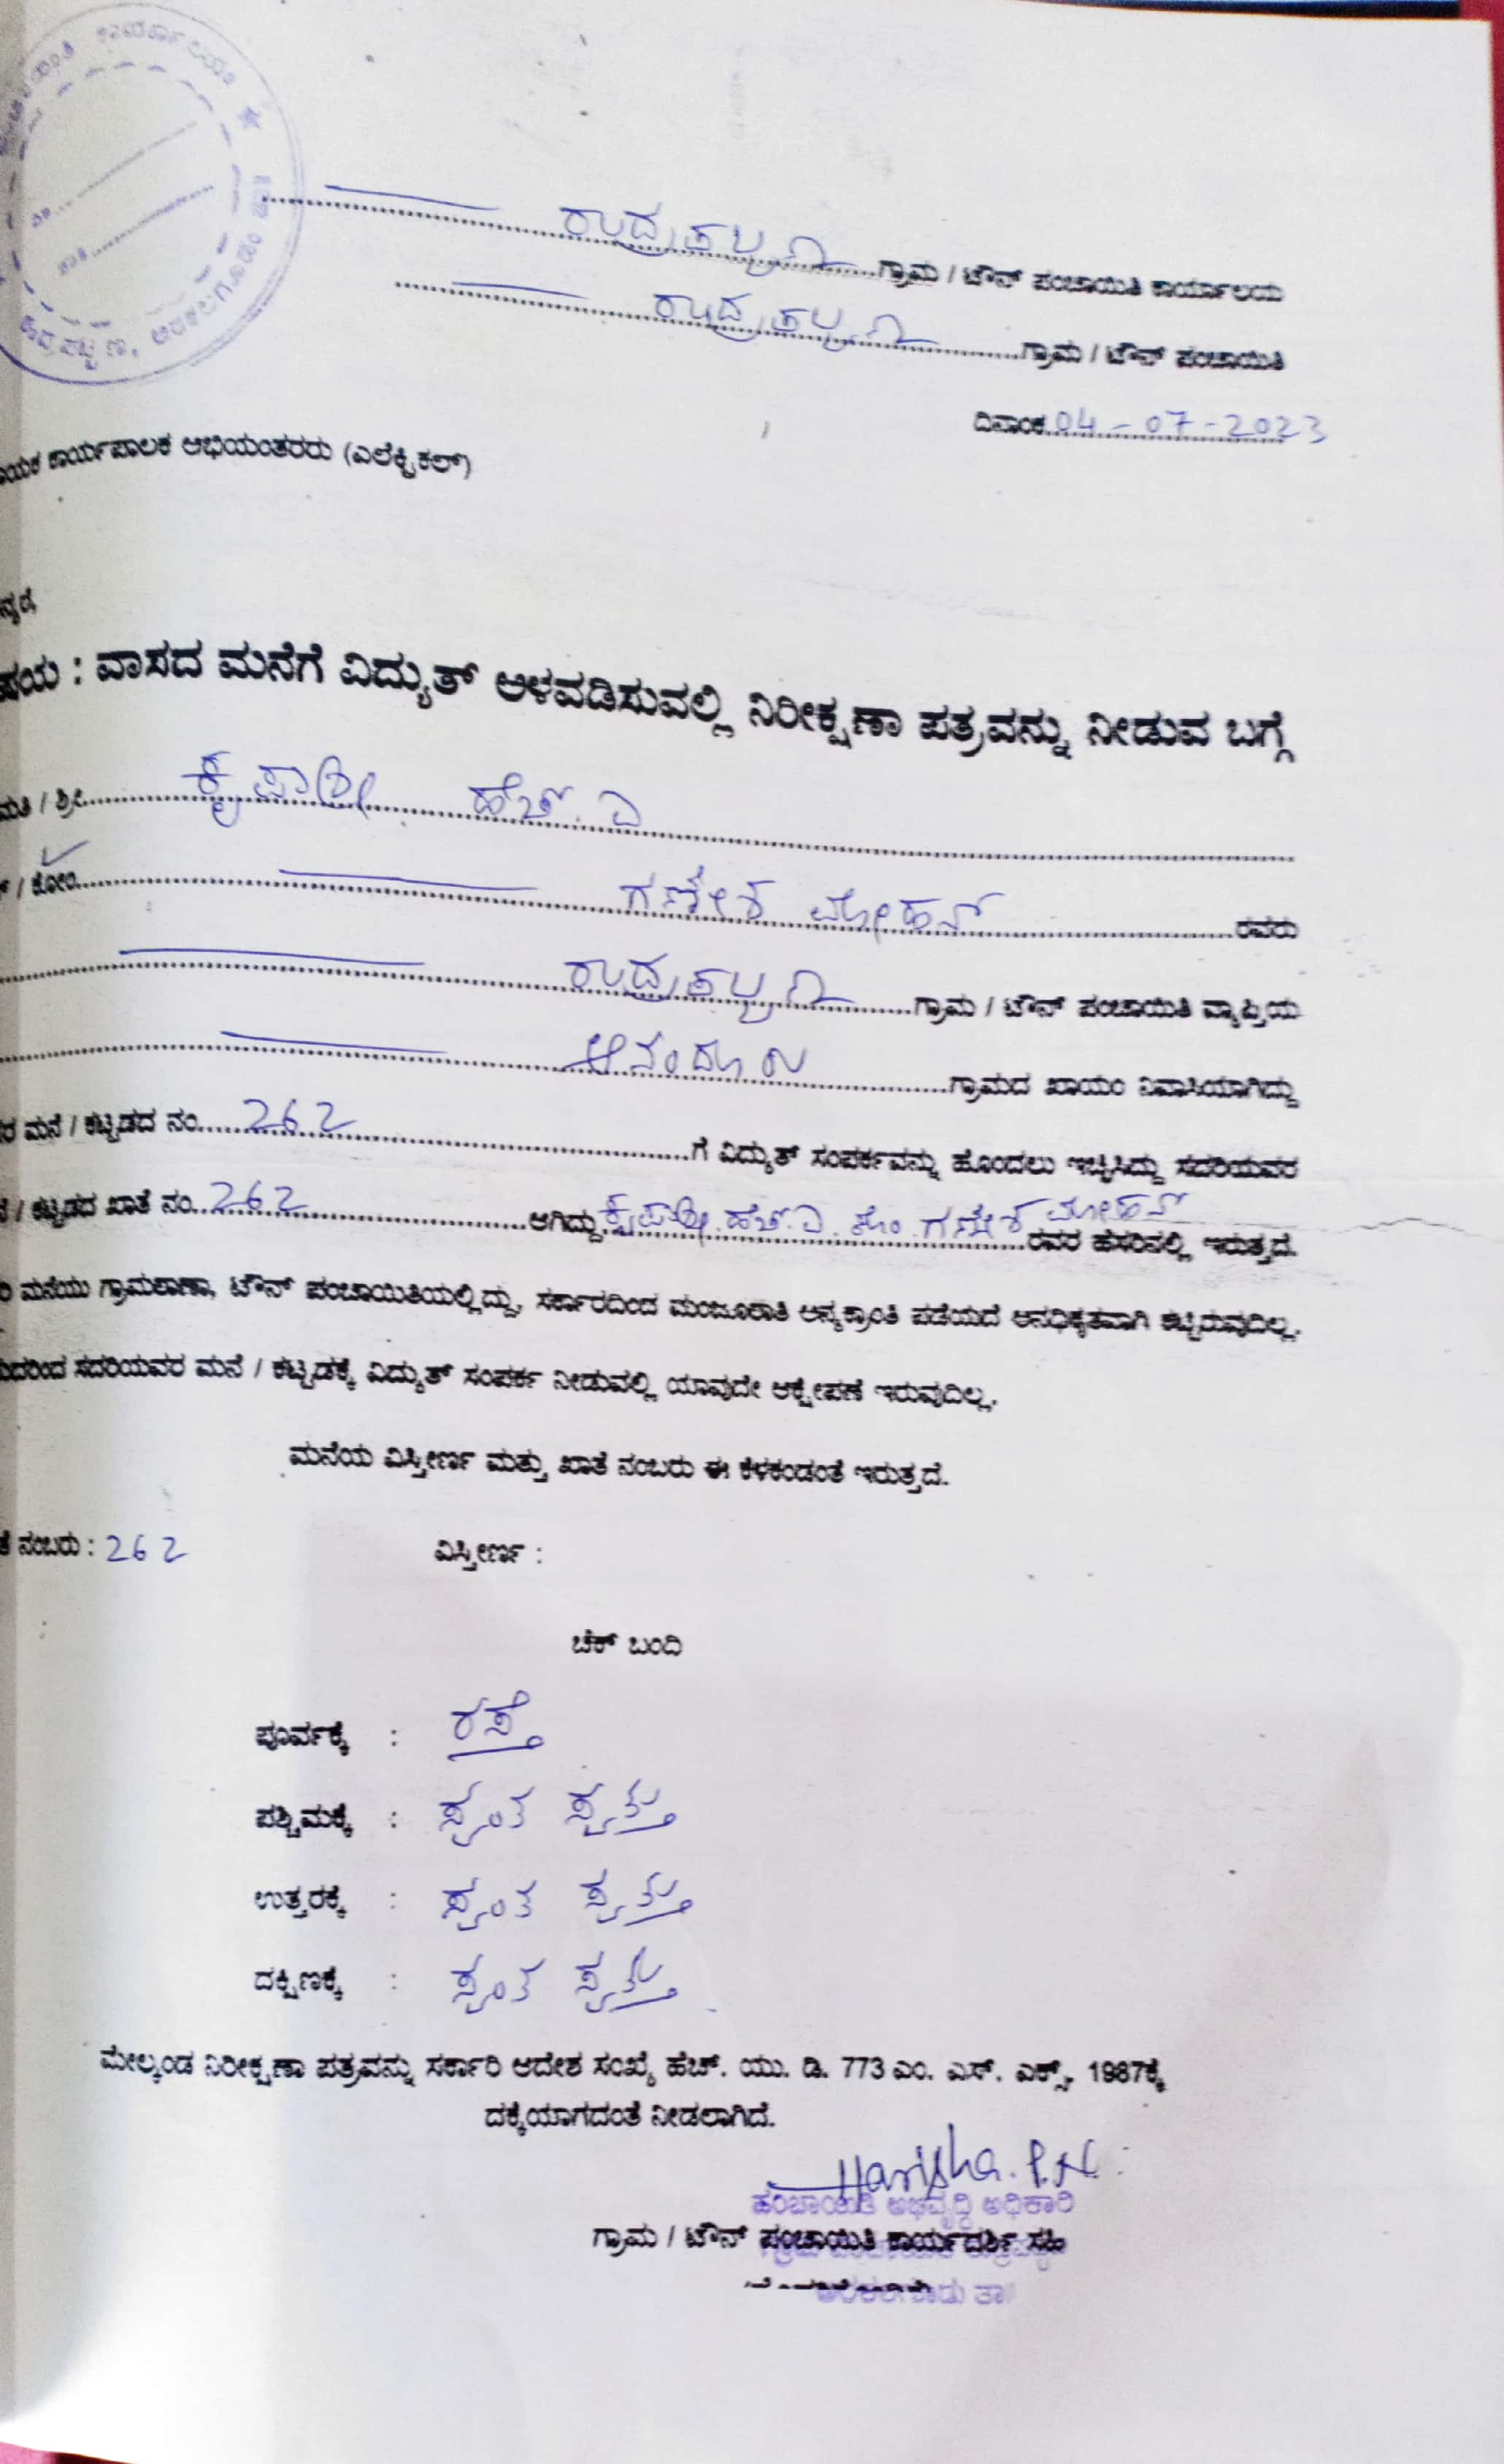 ಕಾರ್ಯಾಲಯ ★
ರುದ್ರಪಟ್ಟಣ, ಅರಕಲಗೂಡು
ರುದ್ರಪಟ್ಟಣ ಗ್ರಾಮ / ಟೌನ್ ಪಂಚಾಯಿತಿ ಕಾರ್ಯಾಲಯ
ರುದ್ರಪಟ್ಟಣ ಗ್ರಾಮ / ಟೌನ್ ಪಂಚಾಯಿತಿ
ದಿನಾಂಕ 04-07-2023
ಕಾರ್ಯಪಾಲಕ ಅಭಿಯಂತರರು (ಎಲೆಕ್ಟ್ರಿಕಲ್)
: ವಾಸದ ಮನೆಗೆ ವಿದ್ಯುತ್ ಅಳವಡಿಸುವಲ್ಲಿ ನಿರೀಕ್ಷಣಾ ಪತ್ರವನ್ನು ನೀಡುವ ಬಗ್ಗೆ
/ ಶ್ರೀ ಕೃಪಾಶ್ರೀ ಹೆಚ್.ಎ
/ ಕೋಂ ಗಣೇಶ ಮೋಹನ್ ರವರು
ರುದ್ರಪಟ್ಟಣ ಗ್ರಾಮ / ಟೌನ್ ಪಂಚಾಯಿತಿ ವ್ಯಾಪ್ತಿಯ
ಗ್ರಾಮದ ಖಾಯಂ ನಿವಾಸಿಯಾಗಿದ್ದು
ಮನೆ / ಕಟ್ಟಡದ ನಂ. 262 ಗೆ ವಿದ್ಯುತ್ ಸಂಪರ್ಕವನ್ನು ಹೊಂದಲು ಇಚ್ಚಿಸಿದ್ದು ಸದರಿಯವರ
/ ಕಟ್ಟಡದ ಖಾತೆ ನಂ. 262 ಆಗಿದ್ದು ಕೃಪಾಶ್ರೀ.ಹೆಚ್.ಎ. ಕೋಂ ಗಣೇಶ ಮೋಹನ್ ರವರ ಹೆಸರಿನಲ್ಲಿ ಇರುತ್ತದೆ.
ಮನೆಯು ಗ್ರಾಮಠಾಣಾ, ಟೌನ್ ಪಂಚಾಯಿತಿಯಲ್ಲಿದ್ದು, ಸರ್ಕಾರದಿಂದ ಮಂಜೂರಾತಿ ಅನ್ಯಕ್ರಾಂತಿ ಪಡೆಯದೆ ಅನಧಿಕೃತವಾಗಿ ಕಟ್ಟಿರುವುದಿಲ್ಲ.
ಸದರಿಯವರ ಮನೆ / ಕಟ್ಟಡಕ್ಕೆ ವಿದ್ಯುತ್ ಸಂಪರ್ಕ ನೀಡುವಲ್ಲಿ ಯಾವುದೇ ಆಕ್ಷೇಪಣೆ ಇರುವುದಿಲ್ಲ.
ಮನೆಯ ವಿಸ್ತೀರ್ಣ ಮತ್ತು ಖಾತೆ ನಂಬರು ಈ ಕೆಳಕಂಡಂತೆ ಇರುತ್ತದೆ.
ನಂಬರು : 262 ವಿಸ್ತೀರ್ಣ :
ಚೆಕ್ ಬಂದಿ
ಪೂರ್ವಕ್ಕೆ : ರಸ್ತೆ
ಪಶ್ಚಿಮಕ್ಕೆ : ಸ್ವಂತ ಸ್ವತ್ತು
ಉತ್ತರಕ್ಕೆ : ಸ್ವಂತ ಸ್ವತ್ತು
ದಕ್ಷಿಣಕ್ಕೆ : ಸ್ವಂತ ಸ್ವತ್ತು
ಮೇಲ್ಕಂಡ ನಿರೀಕ್ಷಣಾ ಪತ್ರವನ್ನು ಸರ್ಕಾರಿ ಆದೇಶ ಸಂಖ್ಯೆ ಹೆಚ್. ಯು. ಡಿ. 773 ಎಂ. ಎಸ್. ಎಕ್ಸ್. 1987ಕ್ಕೆ
ದಕ್ಕೆಯಾಗದಂತೆ ನೀಡಲಾಗಿದೆ.
Harisha.P.N.
ಪಂಚಾಯಿತಿ ಅಭಿವೃದ್ಧಿ ಅಧಿಕಾರಿ
ಗ್ರಾಮ / ಟೌನ್ ಪಂಚಾಯಿತಿ ಕಾರ್ಯದರ್ಶಿ ಸಹಿ